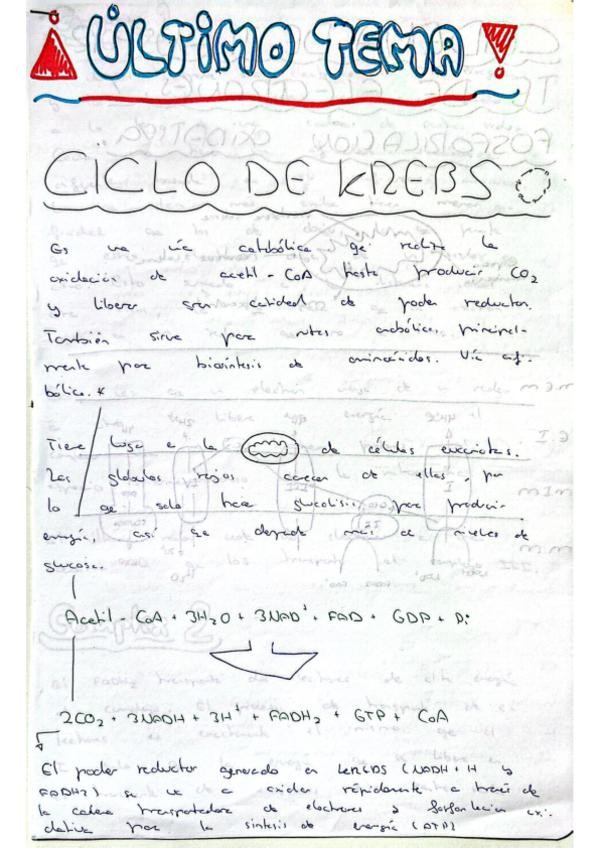 ¡ÚLTIMO TEMA!
CICLO DE KREBS
Es una vía catabólica qe realiza la
oxidación de acetil-CoA hasta producir CO2
y liberar gran cantidad de poder reductor.
También sirve para rutas anabólicas, principal-
mente para biosíntesis de aminoácidos. Vía anfi-
bólica. *
Tiene lugar en la de células eucariotas.
Los glóbulos rojos carecen de ellas, por
lo qe solo hacen glucolisis para producir
energía, así qe depende más de niveles de
glucosa.
Acetil-CoA + 3H2O + 3NAD+ + FAD + GDP + Pi
2CO2 + 3NADH + 3H+ + FADH2 + GTP + CoA
El poder reductor generado en KREBS (NADH+H y
FADH2) se va a oxidar rápidamente a través de
la cadena transportadora de electrones y fosforilación oxi-
dativa para la síntesis de energía (ATP)